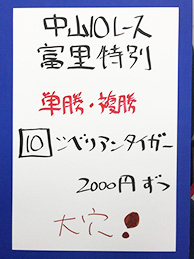 中山10レース
富里特別
単勝・複勝
10 シベリアンタイガー
2000円ずつ
大穴!